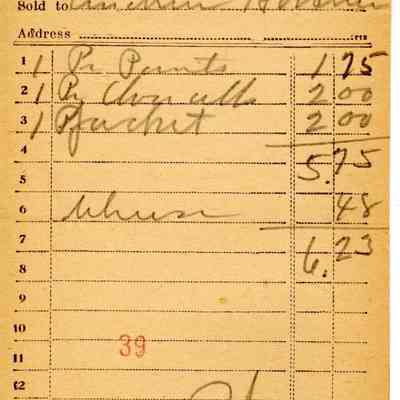 Sold to
Address
1 1 Pr Pants 1 75
2 1 Pr Overalls 2 00
3 1 Jacket 2 00
4
5.75
5
6 48
7
6.23
8
9
10
39
11
12